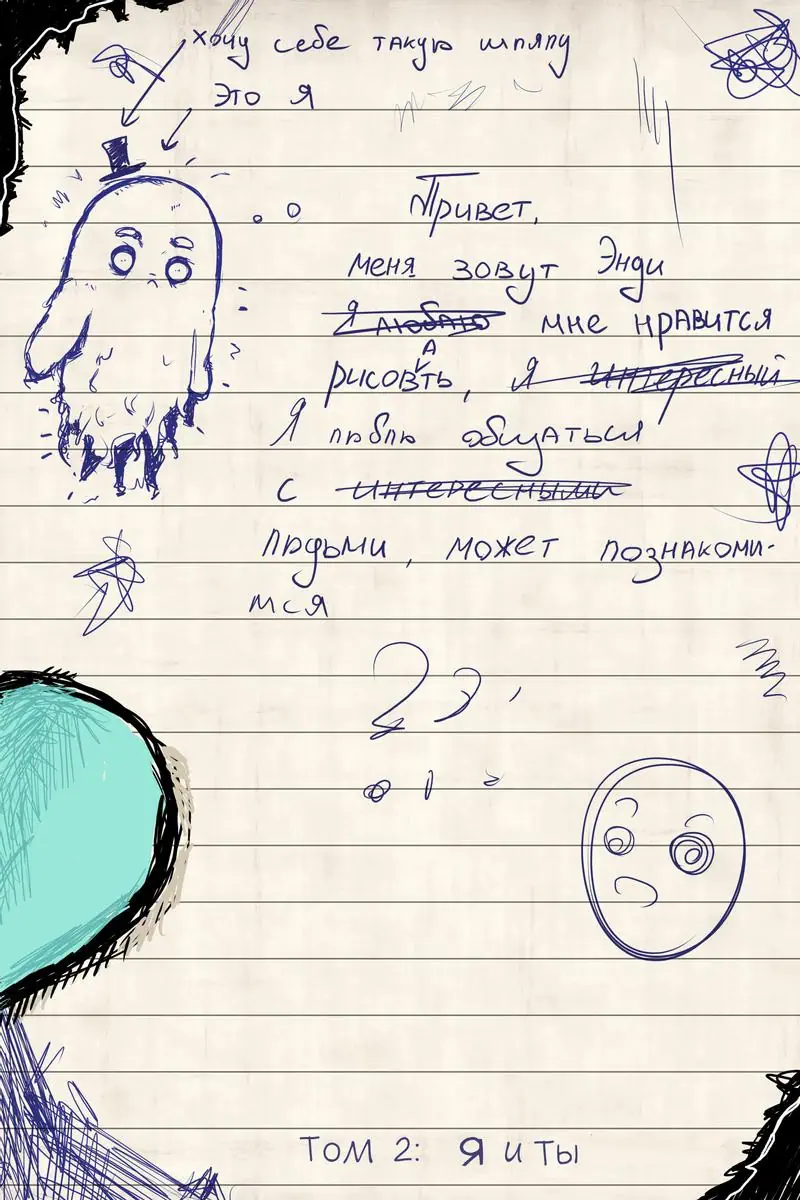 хочу себе такую шляпу
это я
Привет,
меня зовут Энди
Я люблю мне нравится
рисовать, я интересный
Я люблю общаться
с интересными
людьми, может познакоми-
мся
??,
Том 2: Я и ты